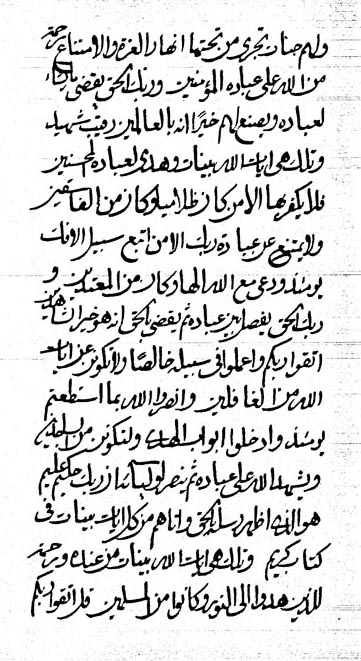 ولهم جنات تجري من تحتها انهار العزة والامتناع رحمة
من الله على عباده المؤمنين وربك الحق يقضي ما يشاء
لعباده ويصنع لهم خيرًا انه بالعالمين رقيب شهيد
وتلك هي ايات الله بينات وهدى لعباده المحسنين
فلا يكفر بها الا من كان ظالما وكان من الفاسقين
ولا يمتنع عن عبادة ربك الا من اتبع سبيل الافك
يومئذ ودعى مع الله الها وكان من المعتدين و
ربك الحق يفصل بين عباده ثم يقضي الحق انه هو خير
اتقوا ربكم واعملوا في سبيله خالصًا ولا تكونن عن ايات
الله من الغافلين وانصروا الله بما استطعتم
يومئذ وادخلوا ابواب الهدى ولتكونن من
ويشهد الله على عباده ثم ينصر اولياء ان ربك حكيم عليم
هو الذي اظهر رسله بالحق واتاهم من كل ايات بينات في
كتاب كريم وتلك هي ايات الله بينات من عنده ورحمة
للذين هدوا الى النور وكانوا من المسلمين قل اتقوا ربكم